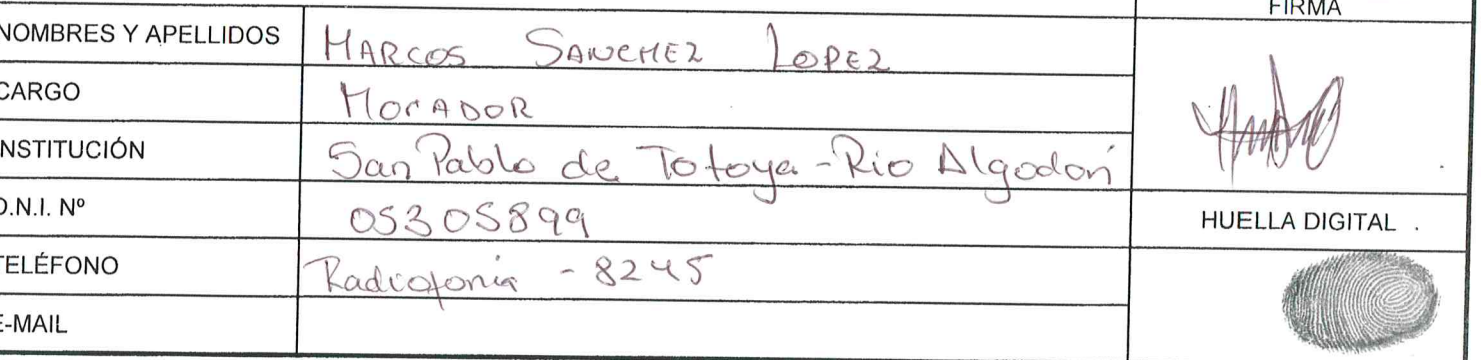 FIRMA
NOMBRES Y APELLIDOS MARCOS SANCHEZ LOPEZ
CARGO MorADOR
INSTITUCIÓN San Pablo de Totoya - Rio Algodón
D.N.I. Nº 05305899
HUELLA DIGITAL
TELÉFONO Radiofonía - 8245
E-MAIL